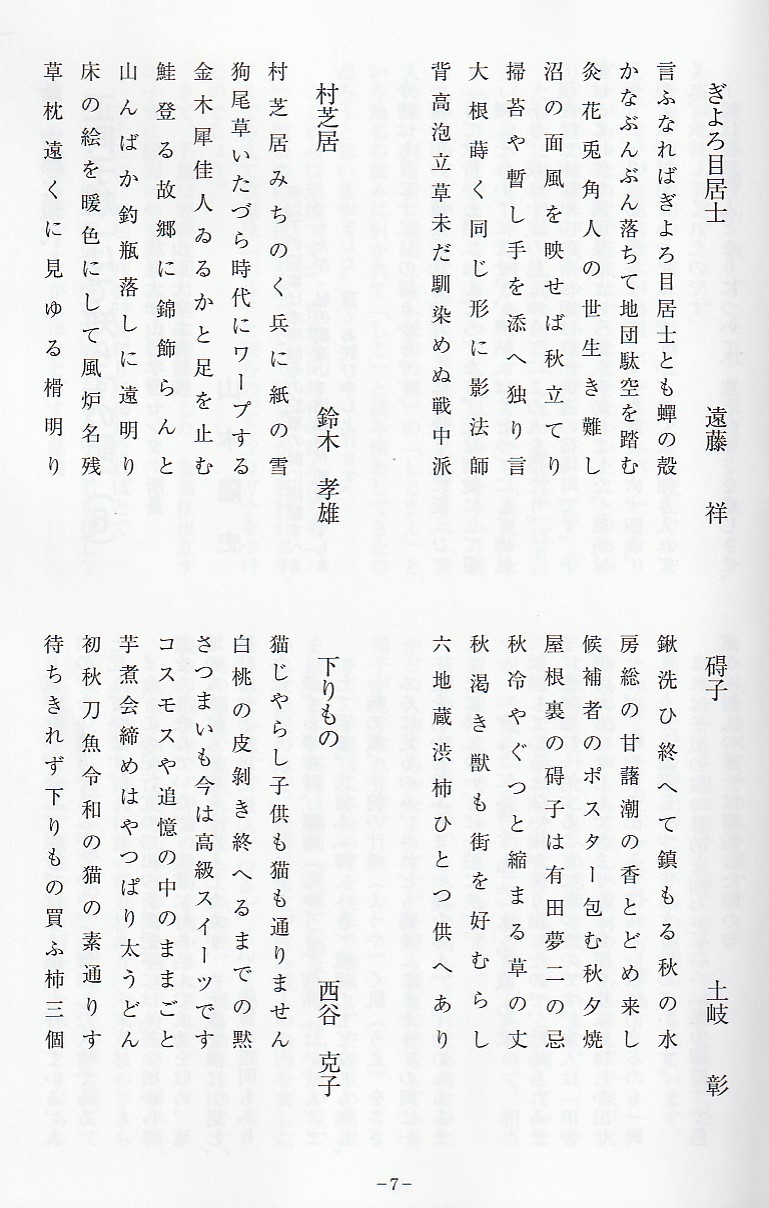 ぎよろ目居士　遠藤　祥
言ふなればぎよろ目居士とも蟬の殻
かなぶんぶん落ちて地団駄空を踏む
灸花兎角人の世生き難し
沼の面風を映せば秋立てり
掃苔や暫し手を添へ独り言
大根蒔く同じ形に影法師
背高泡立草未だ馴染めぬ戦中派
村芝居　鈴木　孝雄
村芝居みちのく兵に紙の雪
狗尾草いたづら時代にワープする
金木犀佳人ゐるかと足を止む
鮭登る故郷に錦飾らんと
山んばか釣瓶落しに遠明り
床の絵を暖色にして風炉名残
草枕遠くに見ゆる榾明り
碍子　土岐　彰
鍬洗ひ終へて鎮もる秋の水
房総の甘藷潮の香とどめ来し
候補者のポスター包む秋夕焼
屋根裏の碍子は有田夢二の忌
秋冷やぐつと縮まる草の丈
秋渇き獣も街を好むらし
六地蔵渋柿ひとつ供へあり
下りもの　西谷　克子
猫じやらし子供も猫も通りません
白桃の皮剝き終へるまでの黙
さつまいも今は高級スイーツです
コスモスや追憶の中のままごと
芋煮会締めはやつぱり太うどん
初秋刀魚令和の猫の素通りす
待ちきれず下りもの買ふ柿三個
−7−